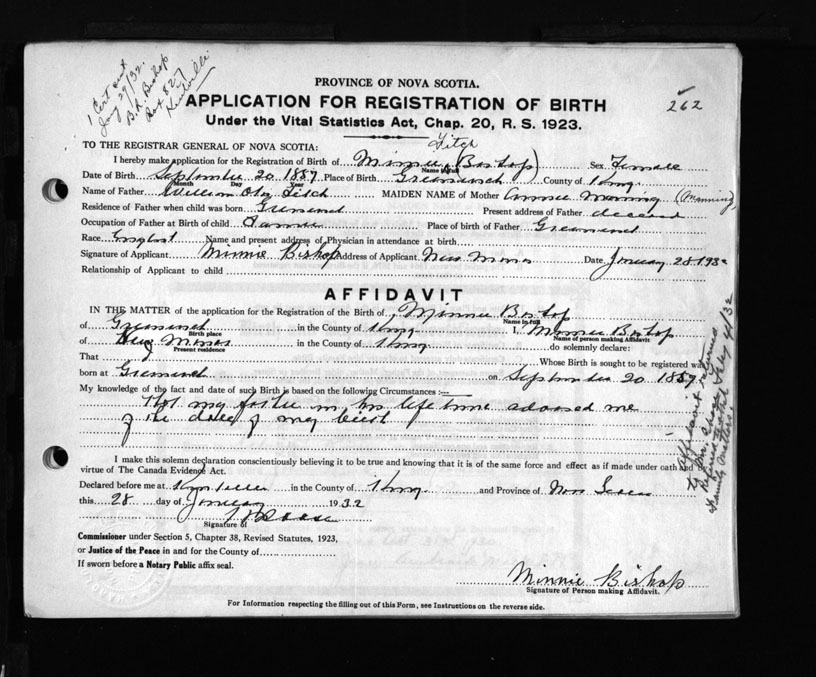 1 Cert sent
Jany 29/32.
B.A. Bishop
Box 827
Kentville
PROVINCE OF NOVA SCOTIA.
APPLICATION FOR REGISTRATION OF BIRTH
262
Under the Vital Statistics Act, Chap. 20, R. S. 1923.
TO THE REGISTRAR GENERAL OF NOVA SCOTIA:
Fitch
I hereby make application for the Registration of Birth of Minnie (Bishop) Sex Female
Name in full
Date of Birth September 20 1887 Place of Birth Greenwich County of Kings
Month Day Year
Name of Father William Fitch MAIDEN NAME of Mother Annie Manning (Manning)
Residence of Father when child was born Greenwich Present address of Father deceased
Occupation of Father at Birth of child Farmer Place of birth of Father Greenwich
Race English Name and present address of Physician in attendance at birth
Signature of Applicant Minnie Bishop Address of Applicant Minas Date January 28 1932
Relationship of Applicant to child
AFFIDAVIT
IN THE MATTER of the application for the Registration of the Birth of Minnie Bishop
Name in full
of Greenwich in the County of Kings I, Minnie Bishop
Birth place Name of person making Affidavit
of Minas in the County of Kings do solemnly declare:
Present residence
That Whose Birth is sought to be registered was
born at Greenwich on September 20 1887.
My knowledge of the fact and date of such Birth is based on the following Circumstances:—
That my father in his life time advised me
of the date of my birth
I make this solemn declaration conscientiously believing it to be true and knowing that it is of the same force and effect as if made under oath and by
virtue of The Canada Evidence Act.
Declared before me at Kentville in the County of Kings and Province of Nova Scotia
this 28 day of January 1932
Signature of
Commissioner under Section 5, Chapter 38, Revised Statutes, 1923,
or Justice of the Peace in and for the County of
If sworn before a Notary Public affix seal.
Minnie Bishop
Signature of Person making Affidavit.
For Information respecting the filling out of this Form, see Instructions on the reverse side.
Affidavit returned